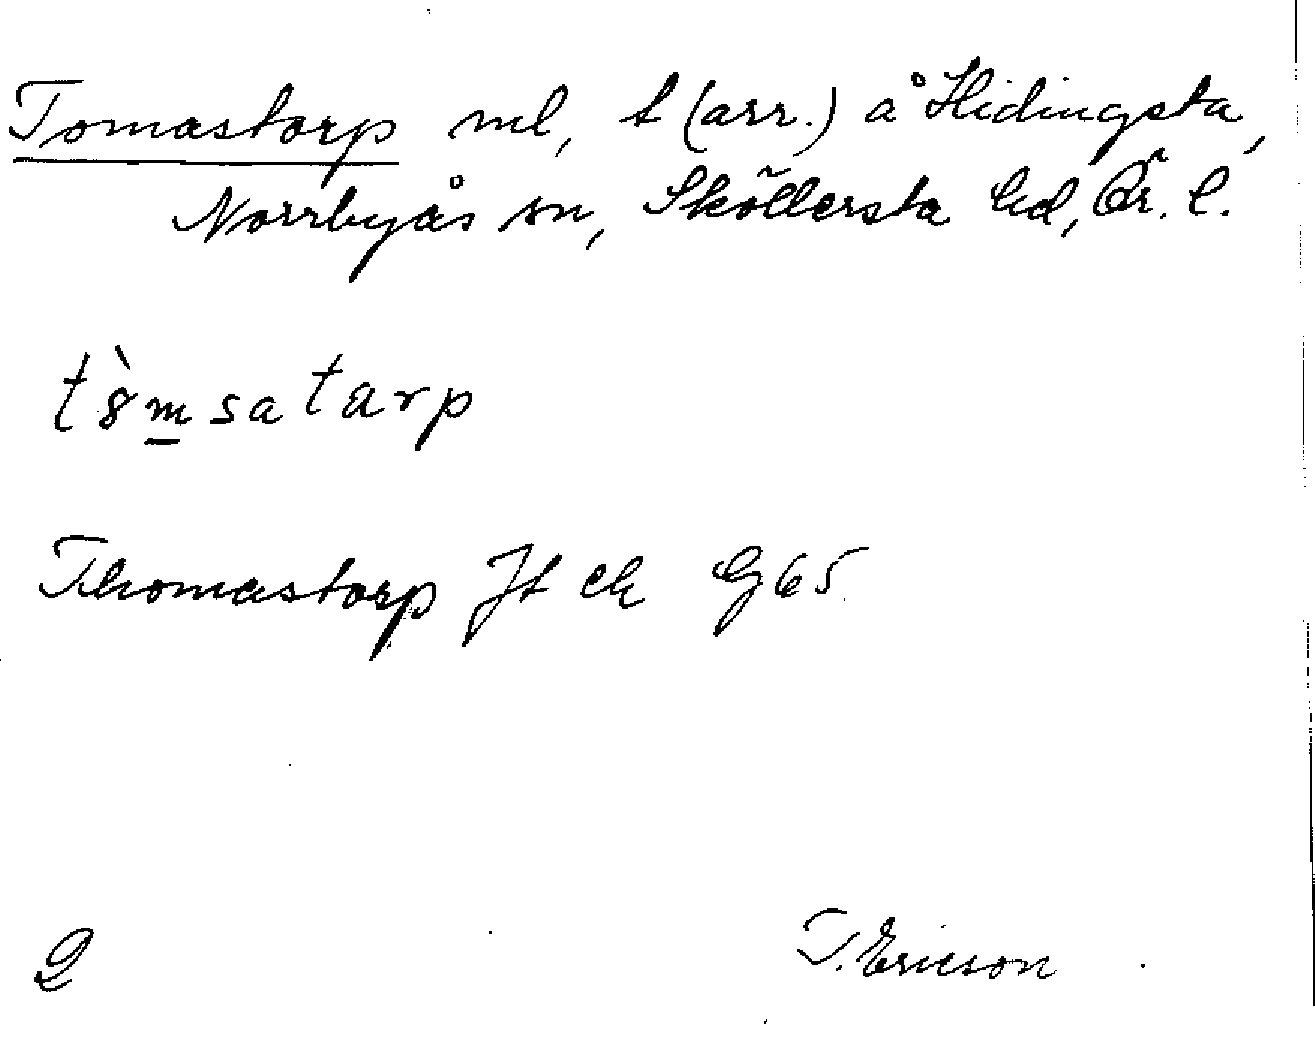 Tomastorp ml, t (arr.) å Hidingsta,
Norrbyås sn, Sköllersta hd, Ör. l.
t8̀m̲satarp
Thomastorp Jt ek G65
T. Ericson